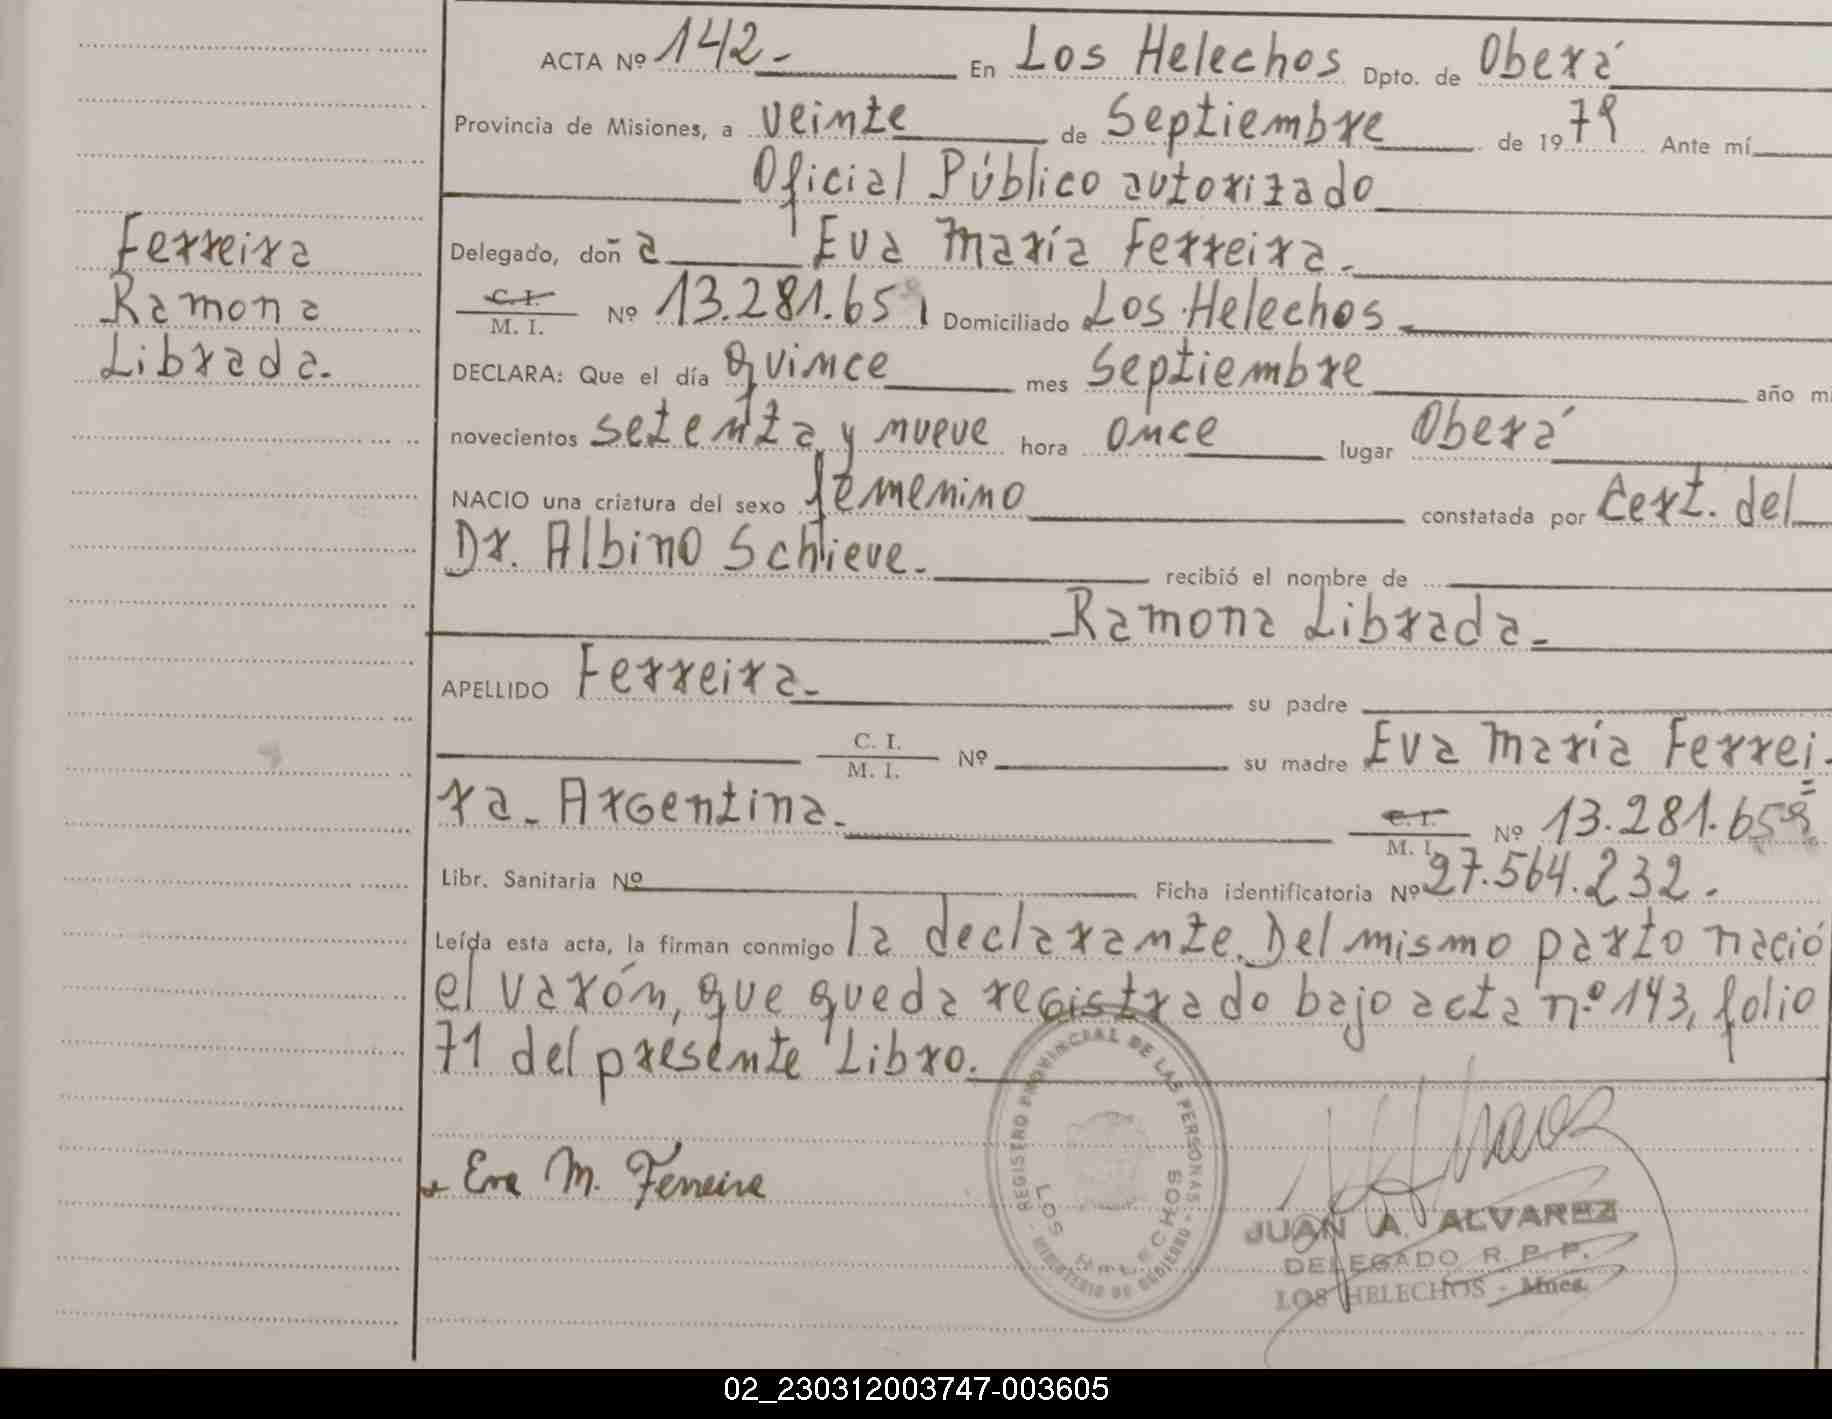 ACTA Nº 142.- En Los Helechos Dpto. de Oberá
Provincia de Misiones, a veinte de Septiembre de 1979 Ante mí
Oficial Público autorizado
Delegado, doña Eva María Ferreira.
C. I. / M. I. Nº 13.281.65 Domiciliado Los Helechos
DECLARA: Que el día quince mes Septiembre año mi
novecientos setenta y nueve hora once lugar Oberá
NACIO una criatura del sexo femenino constatada por Cert. del
Dr. Albino Schieve. recibió el nombre de
Ramona Librada.
APELLIDO Ferreira. su padre
C. I. / M. I. Nº su madre Eva María Ferrei=
ra. Argentina. C. I. / M. I. Nº 13.281.65
Libr. Sanitaria Nº Ficha identificatoria Nº 27.564.232.
Leída esta acta, la firman conmigo la declarante. Del mismo parto nació
el varón, que queda registrado bajo acta n.º 143, folio
71 del presente Libro.
Ferreira
Ramona
Librada.
Eva M. Ferreira
REGISTRO PROVINCIAL DE LAS PERSONAS - MINISTERIO DE GOBIERNO -
LOS HELECHOS
JUAN A. ALVAREZ
DELEGADO R. P. P.
LOS HELECHOS - Mnes.
02_230312003747-003605